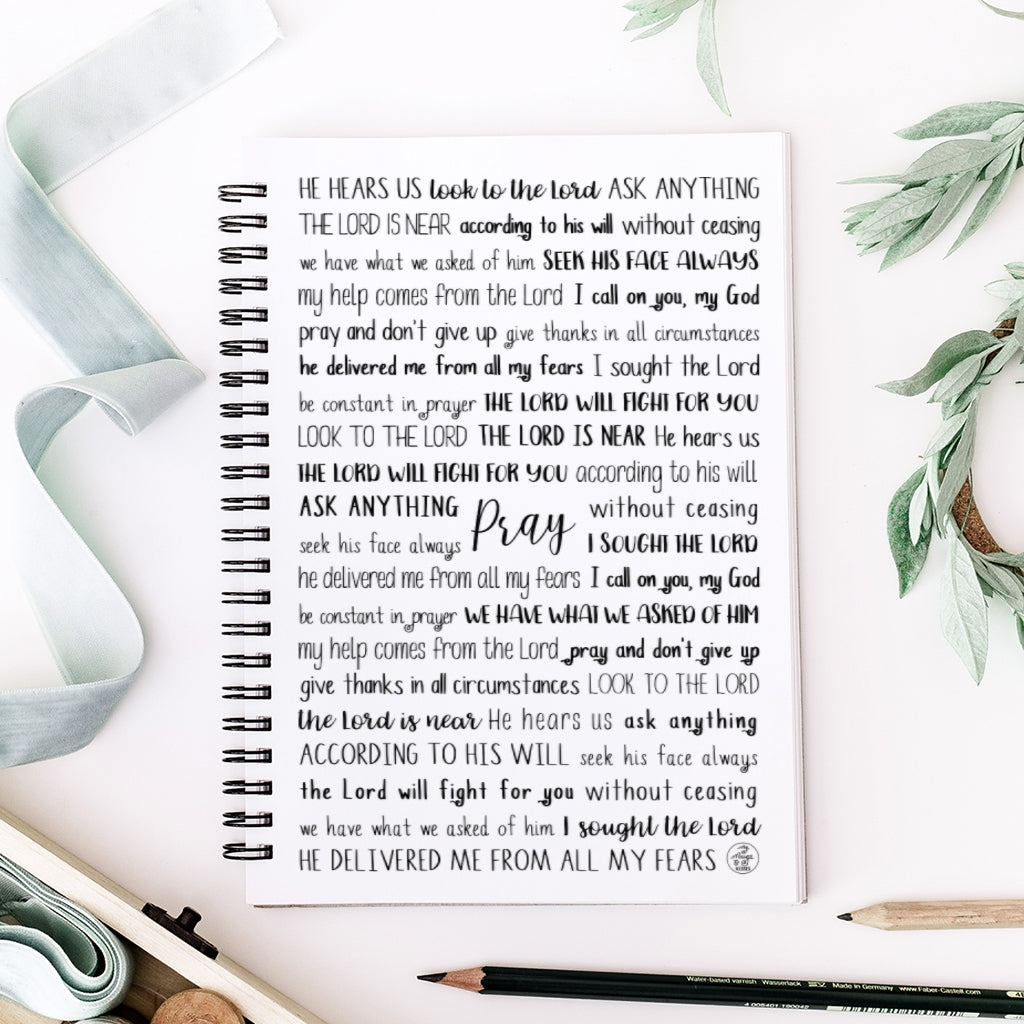 HE HEARS US look to the Lord ASK ANYTHING
THE LORD IS NEAR according to his will without ceasing
we have what we asked of him SEEK HIS FACE ALWAYS
my help comes from the Lord I call on you, my God
pray and don't give up give thanks in all circumstances
he delivered me from all my fears I sought the Lord
be constant in prayer THE LORD WILL FIGHT FOR YOU
LOOK TO THE LORD THE LORD IS NEAR He hears us
THE LORD WILL FIGHT FOR YOU according to his will
ASK ANYTHING
seek his face always
Pray
without ceasing
I SOUGHT THE LORD
he delivered me from all my fears I call on you, my God
be constant in prayer WE HAVE WHAT WE ASKED OF HIM
my help comes from the Lord pray and don't give up
give thanks in all circumstances LOOK TO THE LORD
the Lord is near He hears us ask anything
ACCORDING TO HIS WILL seek his face always
the Lord will fight for you without ceasing
we have what we asked of him I sought the Lord
HE DELIVERED ME FROM ALL MY FEARS
Water-based varnish Wasserlack Made in Germany www.Faber-Castell.com
4 005401 190042